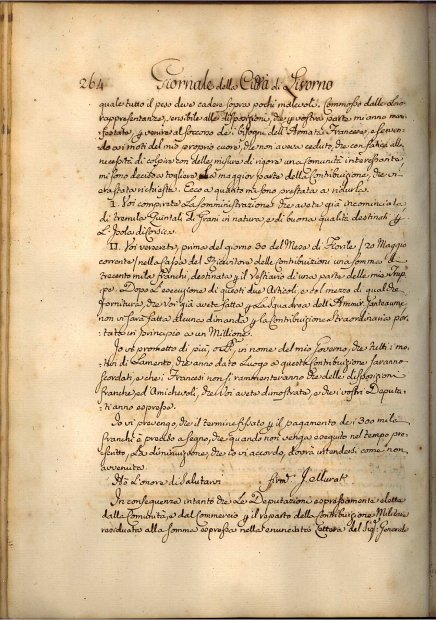 264 Giornale della Città di Livorno
quale tutto il peso deve cadere sopra pochi malevoli. Commosso dalle loro
rappresentanze, sensibile alle disposizioni, che i vostri parte, mi anno mani-
festate, di venire al soccorso de i bisogni dell'Armata Francese, e seren-
do ai moti del mio proprio cuore, che non aveva ceduto, che con fatica alla
necessità di colpire con delle misure di rigore una Comunità interessante,
mi sono deciso a togliere la maggior parte della Contribuzione, che vi
era stata richiesta. Ecco a quanto mi sono prestato a ridurla.
I. Voi compirete la somministrazione che avete già incominciata
di tremila Quintali di Grani in natura, e di buona qualità destinati p
L'Isola di Corsica.
II. Voi verserete, prima del giorno 30 del Mese di Fiorile (20 Maggio
corrente) nella Cassa del Ricevitore delle Contribuzioni una somma di
trecento mila franchi, destinata p il vestiario di una parte delle mie trup-
pe. Dopo l'esecuzione di questi due Articoli, e col mezzo di qualche
fornitura, che Voi già avete fatta p la Squadra dell'Ammir. Ganteaume
non vi sarà fatta alcuna dimanda p la Contribuzione straordinaria por-
tata in principio a un Milione.
Io vi prometto di più, in nome del mio Governo, che tutti i mo-
tivi di lamento, che anno dato luogo a questa Contribuzione saranno
scordati, e che i Francesi non si rammenteranno che delle disposizioni
franche, ed amichevoli, che Voi avete dimostrate, e che i vostri Deputa-
ti anno espresse.
Io vi prevengo, che il termine fissato p il pagamento de i 300 mila
franchi è preciso a segno, che quando non venga eseguito nel tempo pre-
scritto, la diminuzione, che io vi accordo, dovrà intendersi come non
avvenuta.
Hò l'onore di salutarvi firm.
In conseguenza intanto che le Deputazioni espressamente elette
dalla Comunità, e dal commercio p il reparto della Contribuzione Militare
residuata alla somma espressa nella enunciata Lettera del Sig. Generale